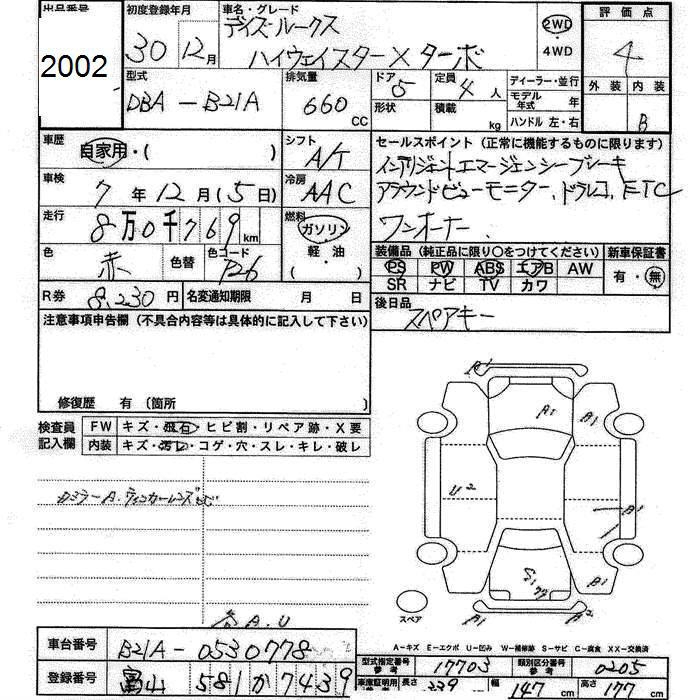 出品番号 初度登録年月 車名・グレード 評価点
2002 30年12月 デイズルークス 2WD 4
ハイウェイスターX ターボ ・4WD
型式 排気量 ドア 5 定員 4人 ディーラー・並行 外装 内装
DBA-B21A 660cc 形状 積載 kg モデル年式 年 ハンドル 左・右 B
車歴 自家用・( ) シフト A/T セールスポイント (正常に機能するものに限ります)
車検 7年12月(5日) 冷房 AAC インテリジェントエマージェンシーブレーキ
アラウンドビューモニター、ドラレコ、ETC
走行 8万0千769km 燃料 ガソリン ワンオーナー、
軽・油
( )
色 赤 色替 色コード 装備品 (純正品に限り○をつけてください) 新車保証書
PS PW ABS エアB AW 有・無
SR ナビ TV カワ
R券 8,230円 名変通知期限 月 日 後日品
スペアキー
注意事項申告欄 (不具合内容等は具体的に記入して下さい)
修復歴 有 (箇所 )
検査員記入欄 FW キズ・飛石・ヒビ割・リペア跡・X要
内装 キズ・汚レ・コゲ・穴・スレ・キレ・破レ
A1
A1 A1
U2
A1
A1
A1 A2
各A.U
スペア
A-キズ E-エクボ U-凹み W-補修跡 S-サビ C-腐食 XX-交換済
車台番号 B21A-0530778 型式指定番号 参考 17703 類別区分番号 参考 0205
登録番号 富山 581 か 7439 車庫証明用 参考 長さ 339 cm 幅 147 cm 高さ 177 cm